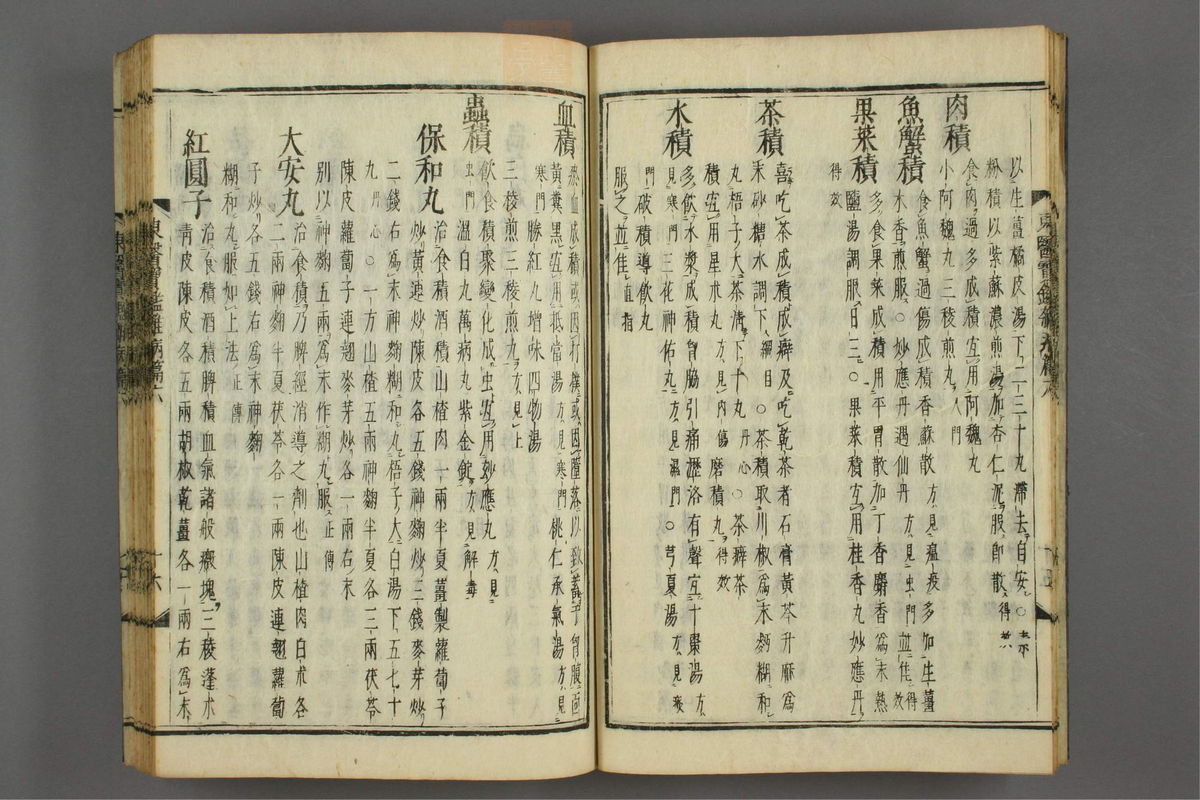 以生薑橘皮湯下二三十丸滯去自安
粉積以紫蘇濃煎湯加杏仁泥服卽散得效
肉積
食肉過多成積宜用阿魏丸
小阿魏丸三稜煎丸入門
魚蟹積
食魚蟹過傷成積香蘇散方見瘟疫多加生薑
木香煎服○妙應丹遇仙丹方見虫門並佳得效
果菜積
多食果菜成積用平胃散加丁香麝香爲末熱
鹽湯調服日三○果菜積宜用桂香丸妙應丹
得效
茶積
喜吃茶成積成癖及吃乾茶者石膏黃芩升麻爲
末砂糖水調下綱目○茶積取川椒爲末麪糊和
丸梧子大茶淸下十丸丹心○茶癖茶
積宜用星朮丸方見內傷磨積丸得效
水積
多飮水漿成積胷脇引痛瀝洛有聲宜十棗湯方
見寒門三花神佑丸方見濕門○芎夏湯方見痰
門破積導飮丸
服之並佳直指
血積
瘀血成積或因打撲或因墮落以致蓄于胷腹面
黃糞黑宜用抵當湯方見寒門桃仁承氣湯方見
寒門勝紅丸增味四物湯
三稜煎三稜煎丸方見上
蟲積
飮食積聚變化成虫宜用妙應丸方見
虫門溫白丸萬病丸紫金錠方見解毒
保和丸
治食積酒積山楂肉二兩半夏薑製蘿蔔子
炒黃連炒陳皮各五錢神麴炒三錢麥芽炒
二錢右爲末神麴糊和丸梧子大白湯下五七十
丸丹心○一方山楂五兩神麴半夏各三兩茯苓
陳皮蘿蔔子連翹麥芽炒各一兩右末
別以神麴五兩爲末作糊丸服正傳
大安丸
治食積乃脾經消導之劑也山楂肉白朮各
二兩神麴半夏茯苓各一兩陳皮連翹蘿蔔
子炒各五錢右爲末神麴
糊和丸服如上法正傳
紅圓子
治食積酒積脾積血氣諸般癥塊三稜蓬朮
靑皮陳皮各五兩胡椒乾薑各一兩右爲末
東醫寶鑑雜病篇六
十六